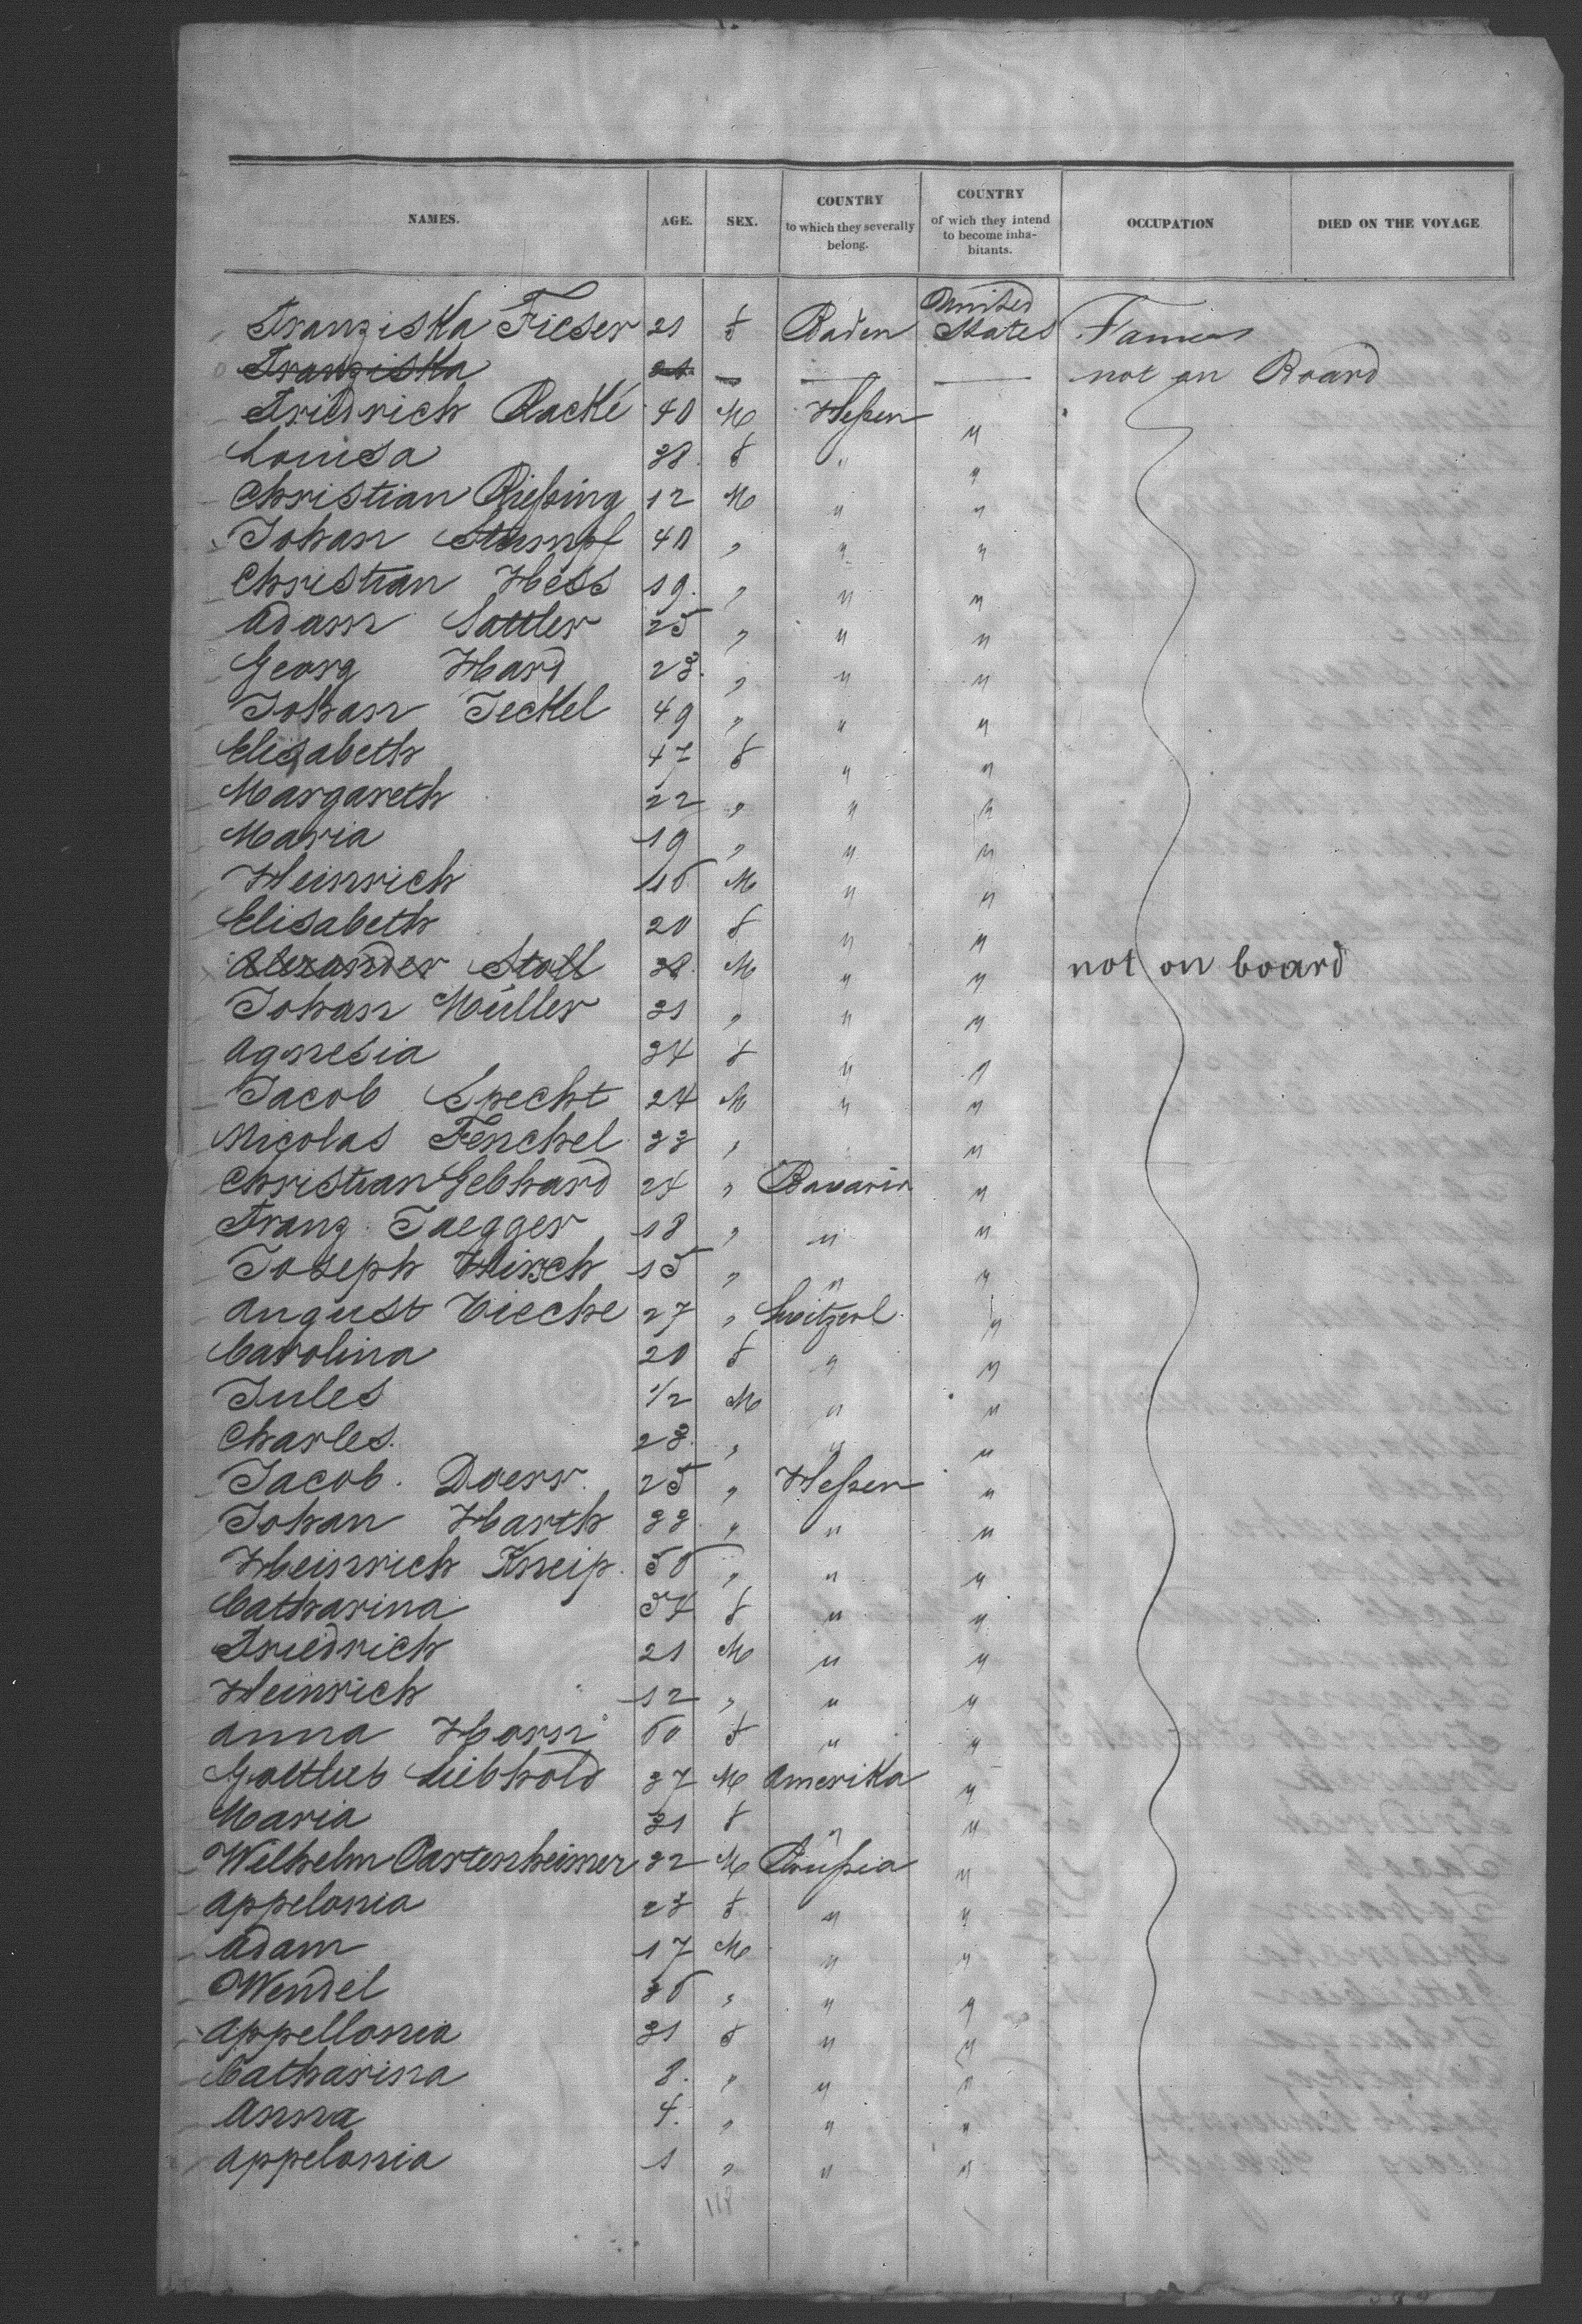 NAMES. AGE. SEX. COUNTRY to which they severally belong. COUNTRY of wich they intend to become inhabitants. OCCUPATION DIED ON THE VOYAGE
Franziska Fieser 21 f Baden United States
Franziska — — — not on Board
Friedrich Racké 40 M Heßen "
Louisa 38. f " "
Christian Rießing 12 M " "
Johan Stumpf 40 " " "
Christian Hess 19. " " "
Adam Sattler 25 " " "
Georg Hard 23. " " "
Johan Jeckel 49 " " "
Elisabeth 47 f " "
Margareth 22 " " "
Maria 19 " " "
Heinrich 16 M " "
Elisabeth 20 f " "
Alexander Stoll 38. M " " not on board
Johan Müller 31 " " "
Agnesia 34 f " "
Jacob Specht 24 M " "
Nicolas Fenchel 33 " " "
Christian Gebhard 24 " Bavaria "
Franz Jaegger 18 " " "
Joseph Hirsch 15 " " "
August Vieche 27 " Switzerl. "
Carolina 20 f " "
Jules 1/2 M " "
Charles. 23. " " "
Jacob. Doerr. 25 " Heßen "
Johan Harth 33 " " "
Heinrich Kneip. 56 " " "
Catharina 54 f " "
Friedrich 21 M " "
Heinrich 12 " " "
Anna Horn 60 f " "
Gottlieb Liebhold 37 M Amerika "
Maria 31 f " "
Wilhelm Partenheimer 32 M Prußia "
Appelonia 23 f " "
Adam 17 M " "
Wendel 36 " " "
Appellonia 31 f " "
Catharina 8. " " "
Anna 4. " " "
Appelonia 1 " " "
118